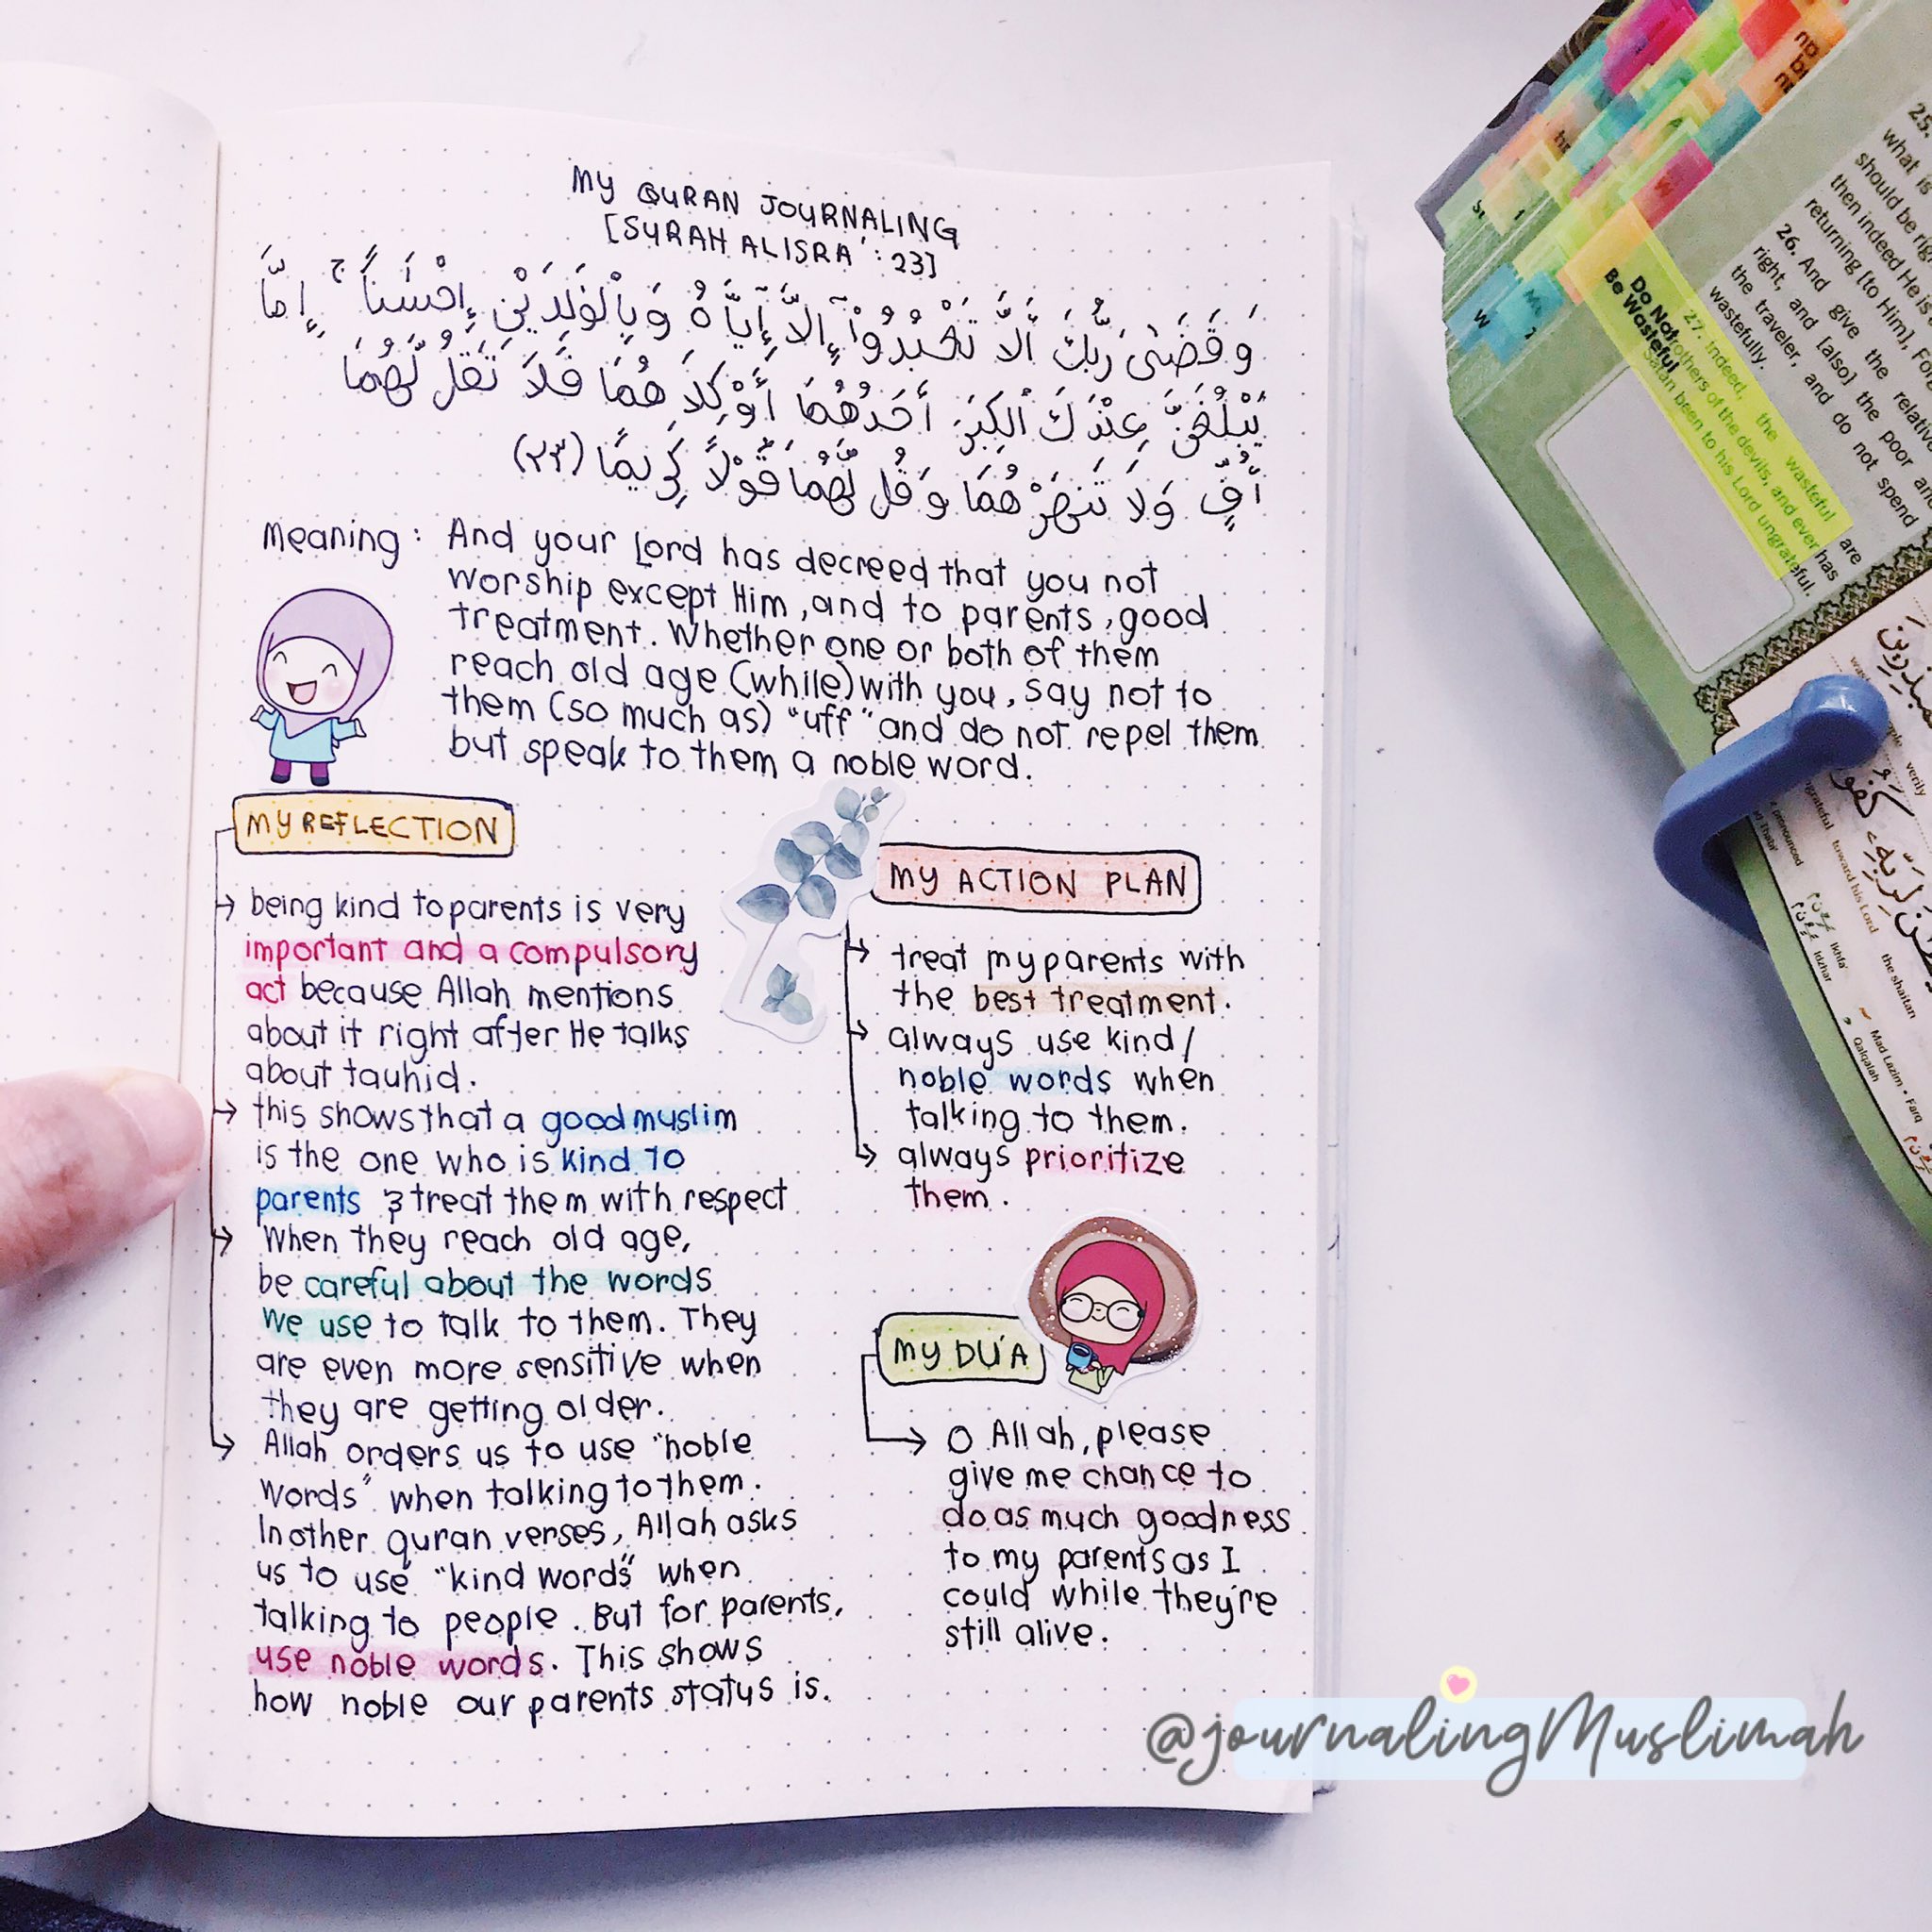 MY QURAN JOURNALING
[SURAH ALISRA' : 23]
وَقَضَىٰ رَبُّكَ أَلَّا تَعْبُدُوٓا۟ إِلَّآ إِيَّاهُ وَبِٱلْوَٰلِدَيْنِ إِحْسَٰنًا ۚ إِمَّا
يَبْلُغَنَّ عِندَكَ ٱلْكِبَرَ أَحَدُهُمَآ أَوْ كِلَاهُمَا فَلَا تَقُل لَّهُمَآ
أُفٍّ وَلَا تَنْهَرْهُمَا وَقُل لَّهُمَا قَوْلًا كَرِيمًا (٢٣)
Meaning : And your Lord has decreed that you not
worship except Him, and to parents, good
treatment. Whether one or both of them
reach old age (while) with you, say not to
them (so much as) "uff" and do not repel them
but speak to them a noble word.
MY REFLECTION
being kind to parents is very
important and a compulsory
act because Allah mentions
about it right after He talks
about tauhid.
this shows that a good muslim
is the one who is kind to
parents & treat them with respect
When they reach old age,
be careful about the words
we use to talk to them. They
are even more sensitive when
they are getting older.
Allah orders us to use "noble
words" when talking to them.
In other quran verses, Allah asks
us to use "kind words" when
talking to people. But for parents,
use noble words. This shows
how noble our parents status is.
MY ACTION PLAN
treat my parents with
the best treatment.
always use kind/
noble words when
talking to them.
always prioritize
them.
MY DU'A
O Allah, please
give me chance to
do as much goodness
to my parents as I
could while they're
still alive.
@journalingMuslimah
25.
what is
should be rig
then indeed He is
returning [to Him], For
26. And give the relative
right, and [also] the poor and
the traveler, and do not spend
wastefully.
Do Not
Be Wasteful
27. Indeed, the wasteful are
others of the devils, and ever has
Satan been to his Lord ungrateful.
verily
toward his Lord
the shaitan
Ikhfa'
Idzhar
Mad Lazim • Farq
Qalqalah